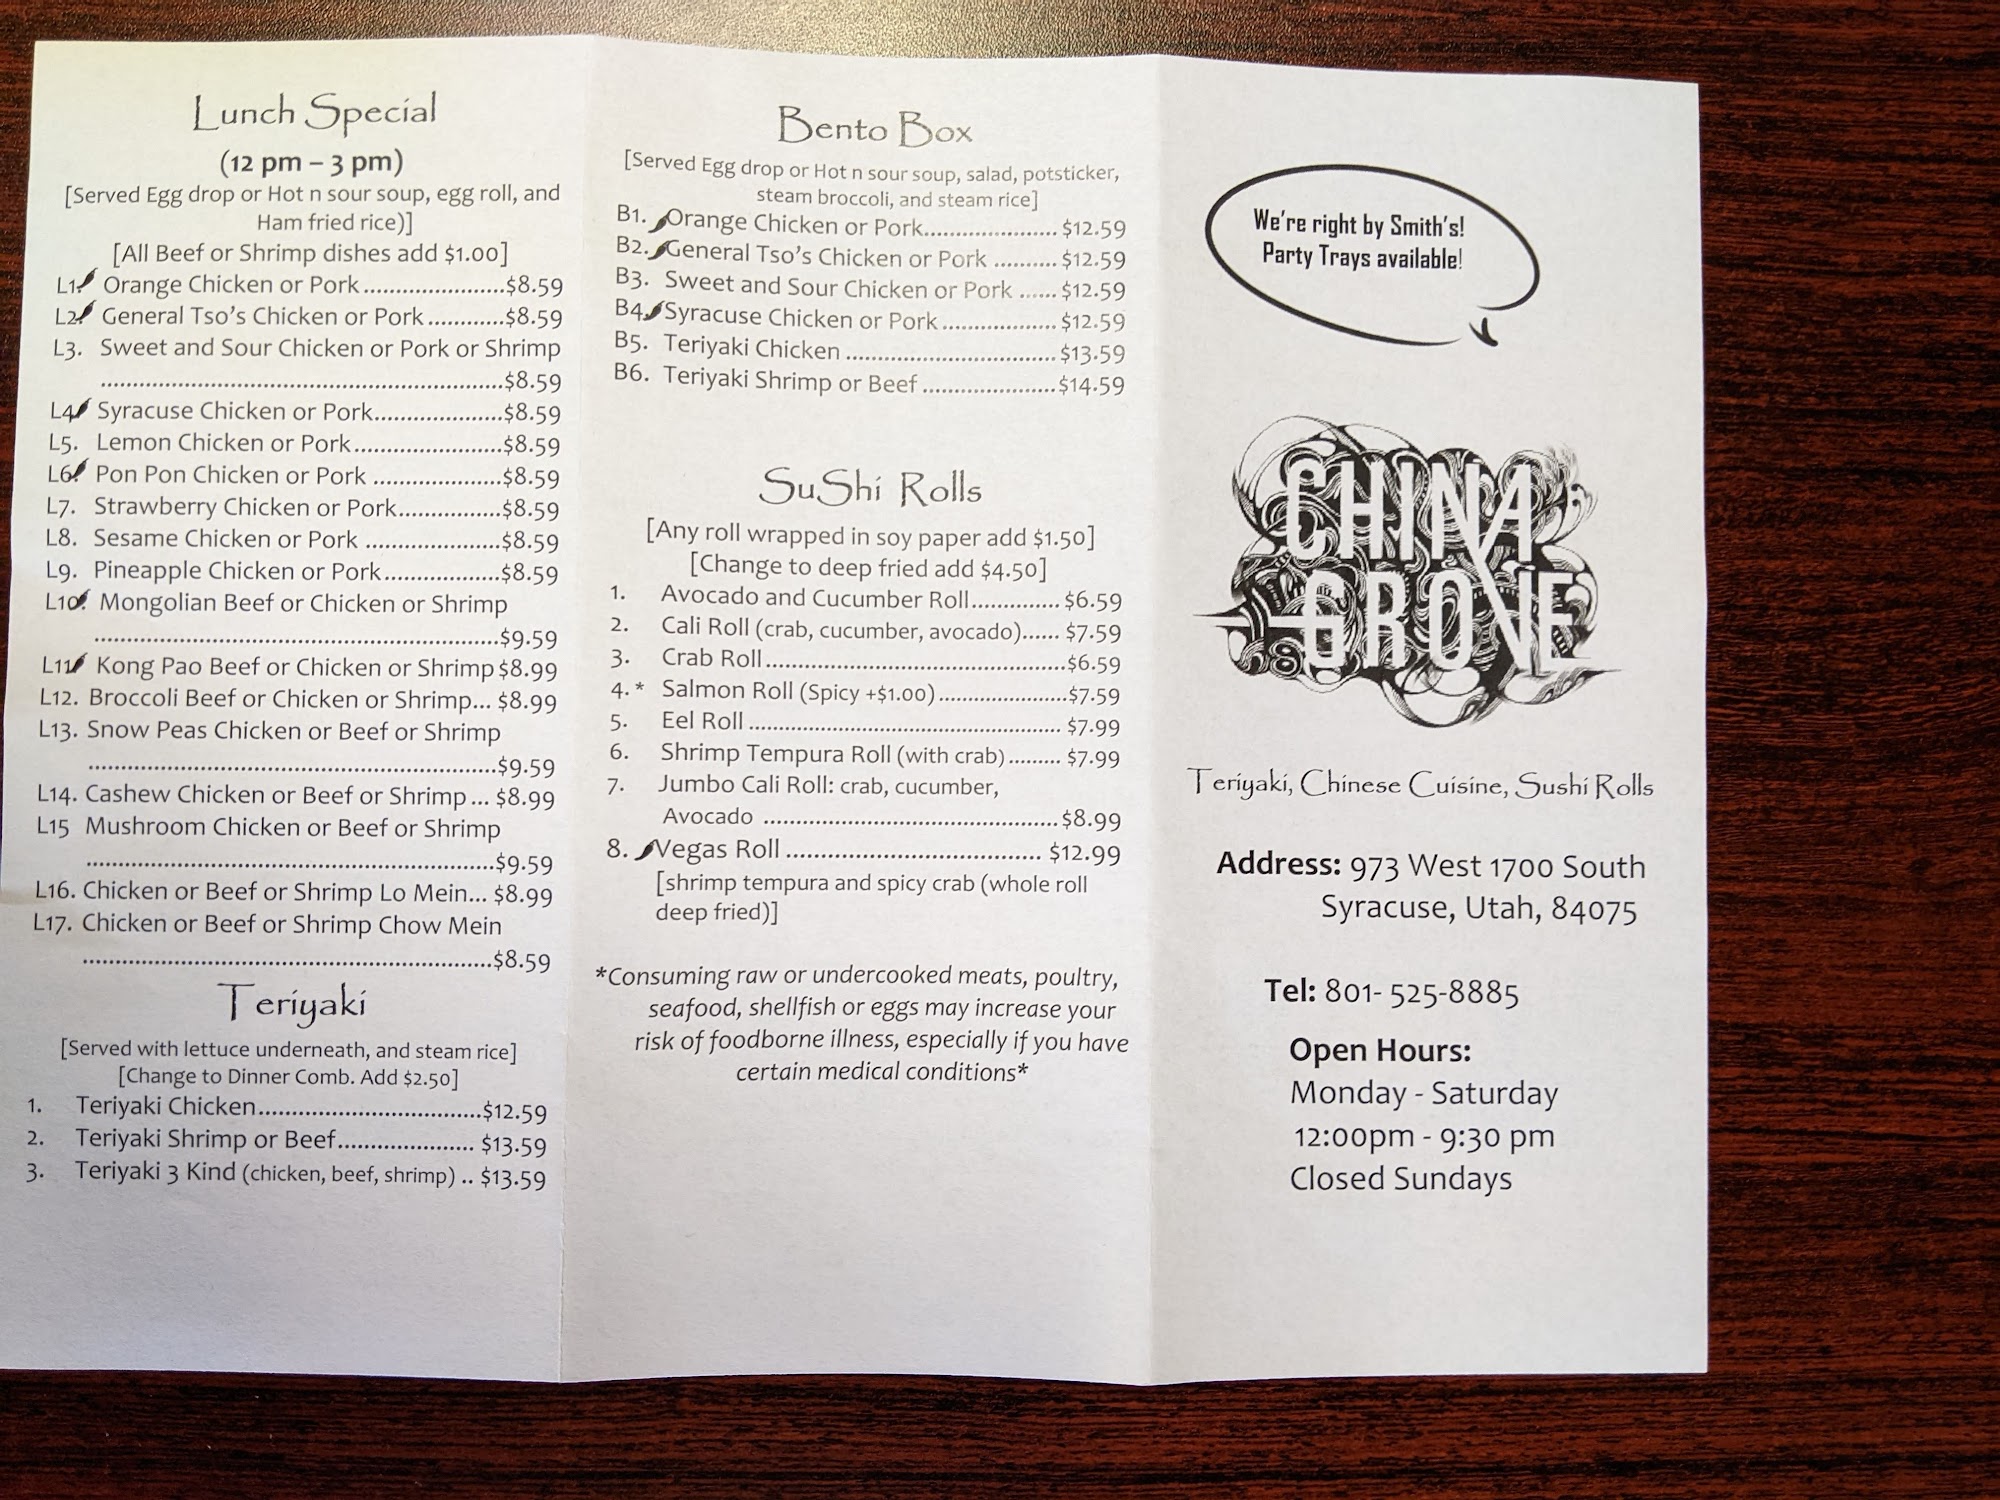 Lunch Special
(12 pm – 3 pm)
[Served Egg drop or Hot n sour soup, egg roll, and
Ham fried rice)]
[All Beef or Shrimp dishes add $1.00]
L1. Orange Chicken or Pork.......................$8.59
L2. General Tso's Chicken or Pork............$8.59
L3. Sweet and Sour Chicken or Pork or Shrimp
..................................................................$8.59
L4. Syracuse Chicken or Pork.....................$8.59
L5. Lemon Chicken or Pork........................$8.59
L6. Pon Pon Chicken or Pork .....................$8.59
L7. Strawberry Chicken or Pork.................$8.59
L8. Sesame Chicken or Pork ......................$8.59
L9. Pineapple Chicken or Pork...................$8.59
L10. Mongolian Beef or Chicken or Shrimp
..................................................................$9.59
L11. Kong Pao Beef or Chicken or Shrimp $8.99
L12. Broccoli Beef or Chicken or Shrimp... $8.99
L13. Snow Peas Chicken or Beef or Shrimp
..................................................................$9.59
L14. Cashew Chicken or Beef or Shrimp ... $8.99
L15 Mushroom Chicken or Beef or Shrimp
..................................................................$9.59
L16. Chicken or Beef or Shrimp Lo Mein... $8.99
L17. Chicken or Beef or Shrimp Chow Mein
..................................................................$8.59
Teriyaki
[Served with lettuce underneath, and steam rice]
[Change to Dinner Comb. Add $2.50]
1. Teriyaki Chicken....................................$12.59
2. Teriyaki Shrimp or Beef...................... $13.59
3. Teriyaki 3 Kind (chicken, beef, shrimp) .. $13.59
Bento Box
[Served Egg drop or Hot n sour soup, salad, potsticker,
steam broccoli, and steam rice]
B1. Orange Chicken or Pork...................... $12.59
B2. General Tso's Chicken or Pork .......... $12.59
B3. Sweet and Sour Chicken or Pork ...... $12.59
B4. Syracuse Chicken or Pork................... $12.59
B5. Teriyaki Chicken ...................................$13.59
B6. Teriyaki Shrimp or Beef ......................$14.59
SuShi Rolls
[Any roll wrapped in soy paper add $1.50]
[Change to deep fried add $4.50]
1. Avocado and Cucumber Roll.............. $6.59
2. Cali Roll (crab, cucumber, avocado)...... $7.59
3. Crab Roll.................................................$6.59
4. * Salmon Roll (Spicy +$1.00).....................$7.59
5. Eel Roll ................................................... $7.99
6. Shrimp Tempura Roll (with crab)......... $7.99
7. Jumbo Cali Roll: crab, cucumber,
Avocado ................................................$8.99
8. Vegas Roll .......................................... $12.99
[shrimp tempura and spicy crab (whole roll
deep fried)]
*Consuming raw or undercooked meats, poultry,
seafood, shellfish or eggs may increase your
risk of foodborne illness, especially if you have
certain medical conditions*
We're right by Smith's!
Party Trays available!
CHINA
GROVE
Teriyaki, Chinese Cuisine, Sushi Rolls
Address: 973 West 1700 South
Syracuse, Utah, 84075
Tel: 801- 525-8885
Open Hours:
Monday - Saturday
12:00pm - 9:30 pm
Closed Sundays